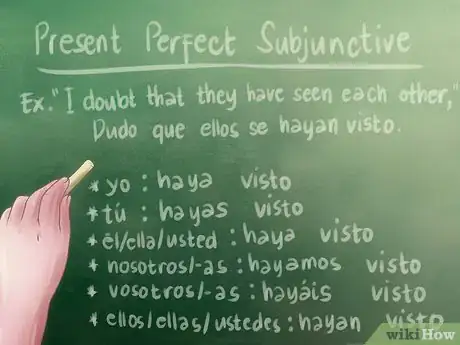 Present Perfect Subjunctive
Ex. "I doubt that they have seen each other,"
Dudo que ellos se hayan visto.
* yo : haya visto
* tú : hayas visto
* él/ella/usted : haya visto
* nosotros/-as : hayamos visto
* vosotros/-as : hayáis visto
* ellos/ellas/ustedes : hayan visto
wikiHow